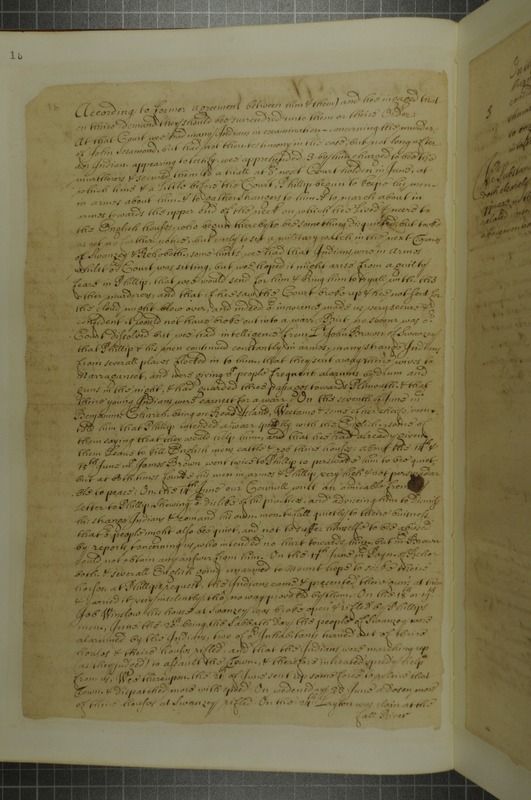 16
According to former agreement between him & them and hee ingaged that
on theire demand they should bee surrendred unto them or theire Order
At that Court wee had many Indians in examination concerning the murder
of John Sassamon, but had not then testimony in the case, but not long after
an Indian appearing to testify, wee apprehended 3 by him charged to bee the
murtherers & secured them to a triall at our next Court holden in June, at
which time & a little before the Court, Philip began to keepe his men
in armes about him & to gather strangers to him & to march about in
armes towards the upper end of the neck on which hee lived & neere to
the English houses, who began thereby to be something disquieted, but tooke
as yet no further notice, but only to sett a military watch in the next Townes
of Swanzey & Rehoboth, some hints wee had that Indians were in armes
whilst our Court was sitting, but wee hoped it might arise from a guilty
feare in Phillip, that wee would send for him & bring him to tryall with the
other murderers, and that if hee saw the Court broke up & hee not sent for
the cloud might blow over, and indeed our innocence made us very secure &
confident it would not have broke out into a warr. But no sooner was our
Court dissolved but wee had intelligence from L. John Browne of Swanzey
that Phillip & his men continued constantly in armes, many strange Indians
from severall places flocked in to him, & that they sent away their wives to
Narraganset, and were giving our people frequent alarums by drum and
guns in the night, & had guarded three passages towards Plimouth & that
their young Indians were earnest for a warr. On the seventh of June mr
Benjamine Church being on Road Iland, Weetamo & some of her cheife men
told him that Philip intended a warr speedily with the English, some of
them saying that they would help him, and that hee had already given
them leave to kill English mens cattle & rob theire houses. about the 14th &
15th June mr James Brown went twice to Phillip to perswade him to bee quiet
but at both times found his men in armes & Phillip very high & not perswada
ble to peace: On the 14th June our Councill writt an amicable friendly
letter to Phillip shewing our dislike of his practices, and advising him to dismiss
his strange Indians & command his owne men to fall quietly to theire business
that our people might also bee quiet, and not to suffer himself to bee abused
by reports concerning us, who intended no hurt towards him, but mr Brown
could not obtain any answer from him. On the 17th June mr Payne of Reho
both & severall English going unarmed to mount hope to seeke theire
horses at Phillips request, the Indians came & presented theire guns at them
& carried it very insolently tho no way provoked by them. On the 18th or 19th
Job Winslow his house at Swanzey was broke open & rifled by Phillips
men. June the 20th being the Sabbath day, the people of Swanzey were
alarumed by the Indians, two of our Inhabitants turned out of theire
houses & theire houses rifled, and that the Indians were marching up
as they judged to assault the Town, & therefore intreated speedy help
from us. Wee thereupon the 21 of June sent up some force to releive that
Town, & dispatched more with speed. On wednesday 23 June a dozen more
of theire houses at Swanzey rifled. On the 24th Layton was slain at the
fall River